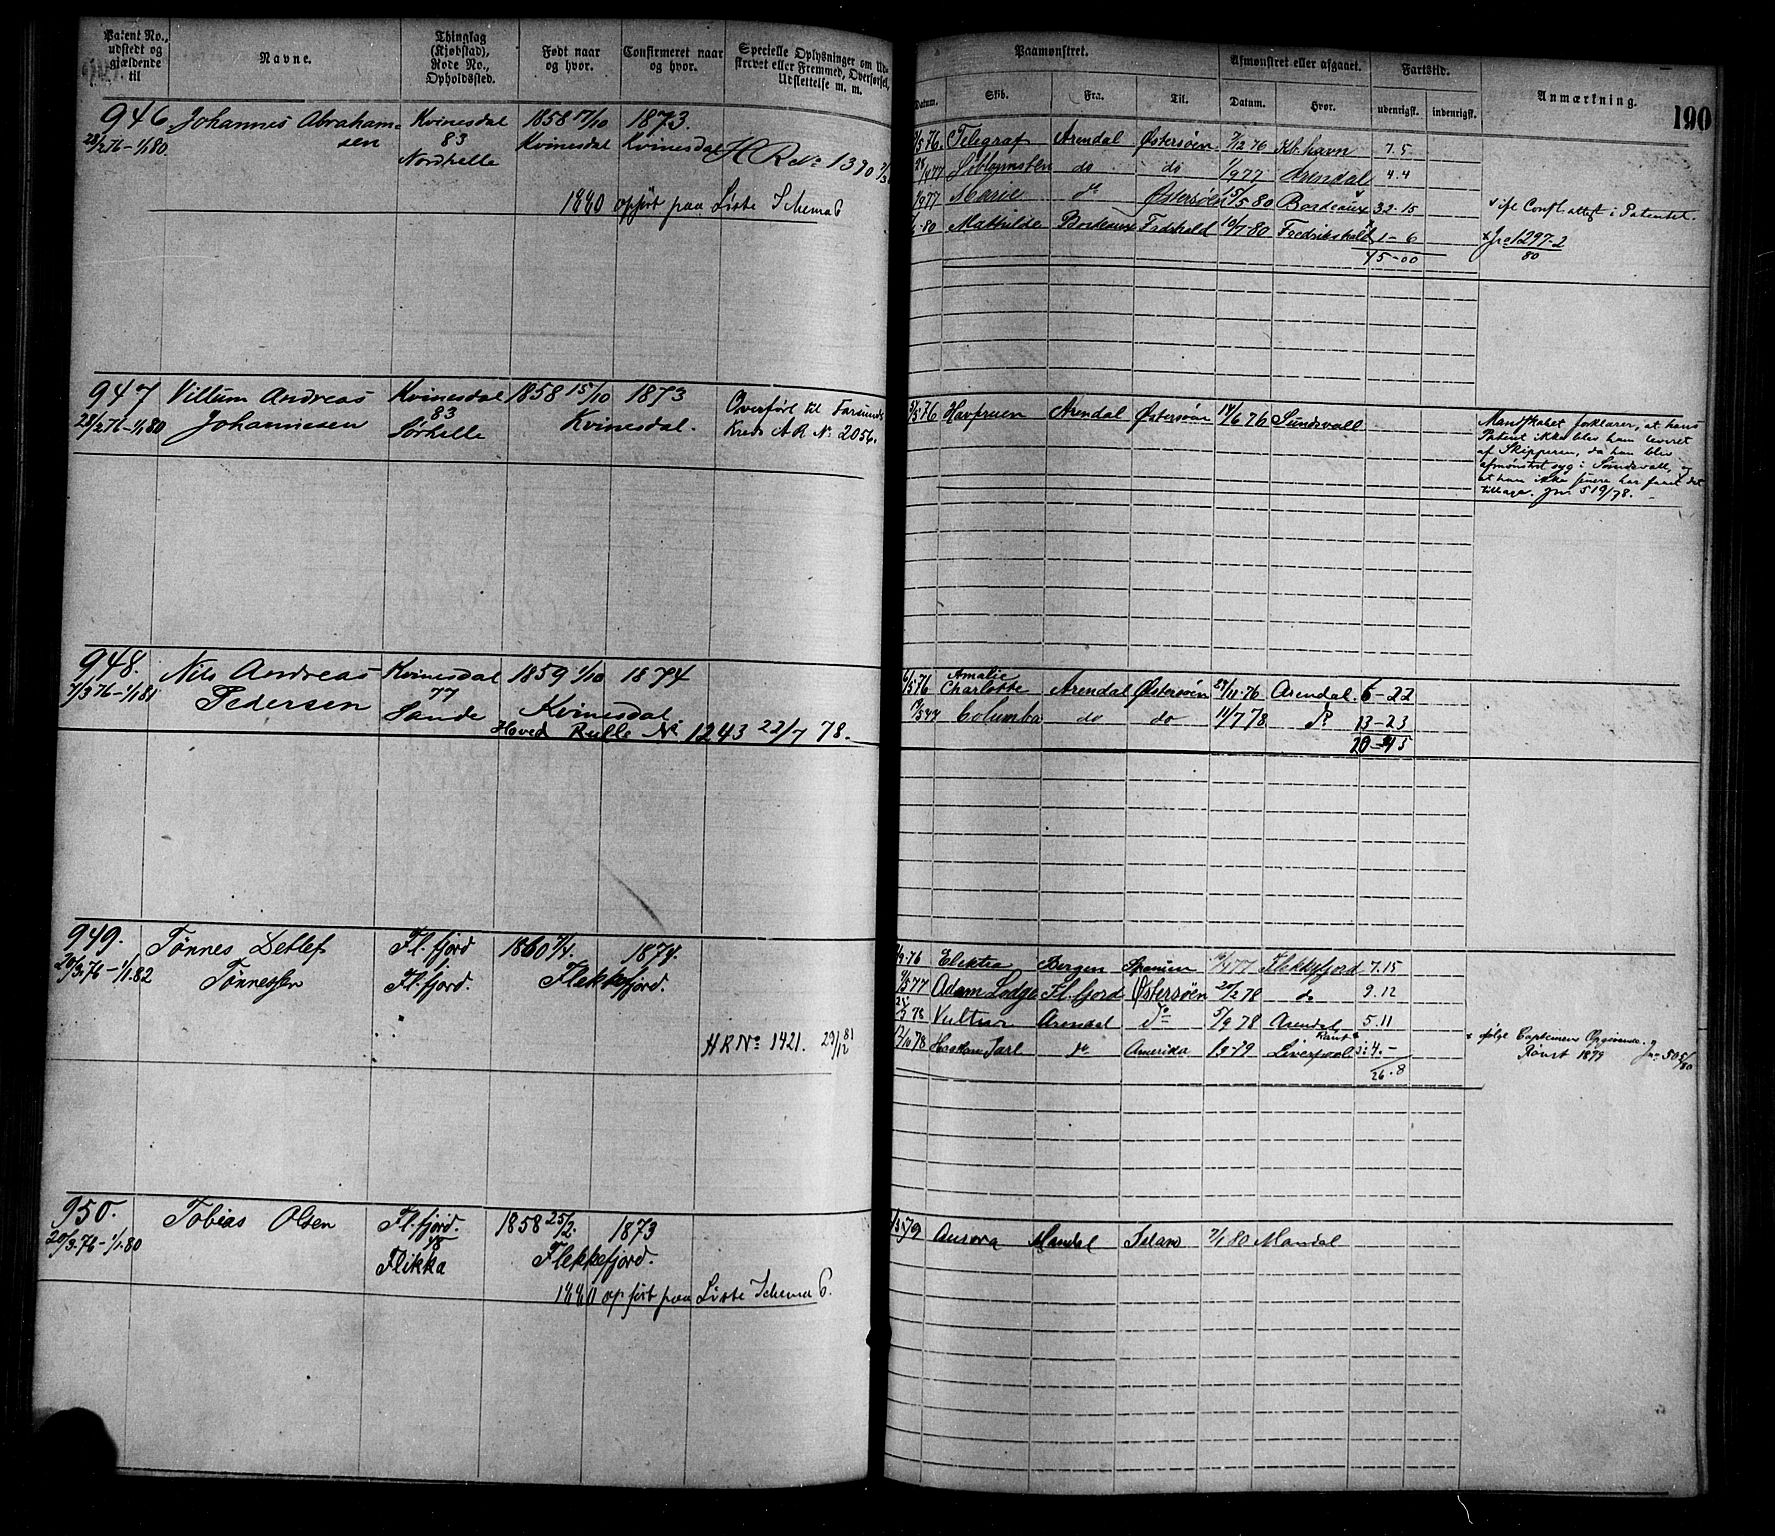 Patent No., udstedt og gjældende til
Navne.
Thinglag (Kjøbstad), Rode No., Opholdssted.
Født naar og hvor.
Confirmeret naar og hvor.
Specielle Oplysninger om Udskrevet eller Fremmed, Overførsel, Udslettelse m. m.
Paamønstret.
Datum.
Skib.
Fra.
Til.
Afmønstret eller afgaaet.
Datum.
Hvor.
Fartstid.
udenrigst.
indenrigst.
Anmærkning.
190
946 Johannes Abraham- Kvinesdal 1858 17/10 1873.
28/2 76 - 1/1 80. sen 83 Kvinesdal Kvinesdal
Nordhelle H R No 1390
1880 opført paa Liste Schema 6
/5 76. Telegraf Arendal Østersøen 7/12 76 Kb.havn 7.5
do do 1/9 77 Arendal 4.4
/9 77 Marie do Østersøen 15/5 80 Bordeaux 32-15
-80 Mathilde Bordeaux Fredshald 10/7-80 Fredrikshald 1-6
45-00
x ifl Confl. attest i Patentet.
x Jno 1297-2
80
947 Villum Andreas Kvinesdal 1858 15/10 1873 Overført til Farsunds
28/2 76 - 1/1 80 Johannesen 83 Kvinesdal. Kreds A R No 2056.
Sørhelle
/5 76 Havfruen Arendal Østersøen 14/6 76 Sundsvall
Mandskabet forklarer, at hans
Patent ikke blev ham leveret
af Skipperen, da han blev
afmønstret syg i Sundsvall, og
at han ikke senere har faaet det
tilbage. Jno 519/78.
948. Nils Andreas Kvinesdal 1859 1/10 1874
7/3 76 - 1/1 81 Pedersen 77 Kvinesdal
Sande Hoved Rulle No 1243 22/7 78.
6/5 76 Amalie
Charlotte Arendal Østersøen 27/11-76 Arendal 6-22
Columba do do 11/7 78 do 13-23
20-15
949. Tønnes Detlef Fl.fjord 1860 7/4 1874.
20/3 76 - 1/1 82 Tønnessen Fl.fjord. Flekkefjord.
H R No 1421. 29/12 81
/9 76 Elektra Bergen Spanien /4 77 Flekkefjord 7.15
/5 77 Adam Lodge Fl.fjord Østersøen 20/2 78 do 9.12
Vultur Arendal do 5/9 78 Arendal 5.11
/10 78 Hakon Jarl do Amerika 79 Liverpool 3:4.-
26.8
x ifølge Capteinens Opgivende.
1879 Jno 505/80
950. Tobias Olsen Fl.fjord. 1858 25/2. 1873
20/3 76 - 1/1 80 48 Flekkefjord.
Flikka
1880 opført paa Liste Schema 6.
/5 79 Aurora Mandal Island 7/1 80 Mandal